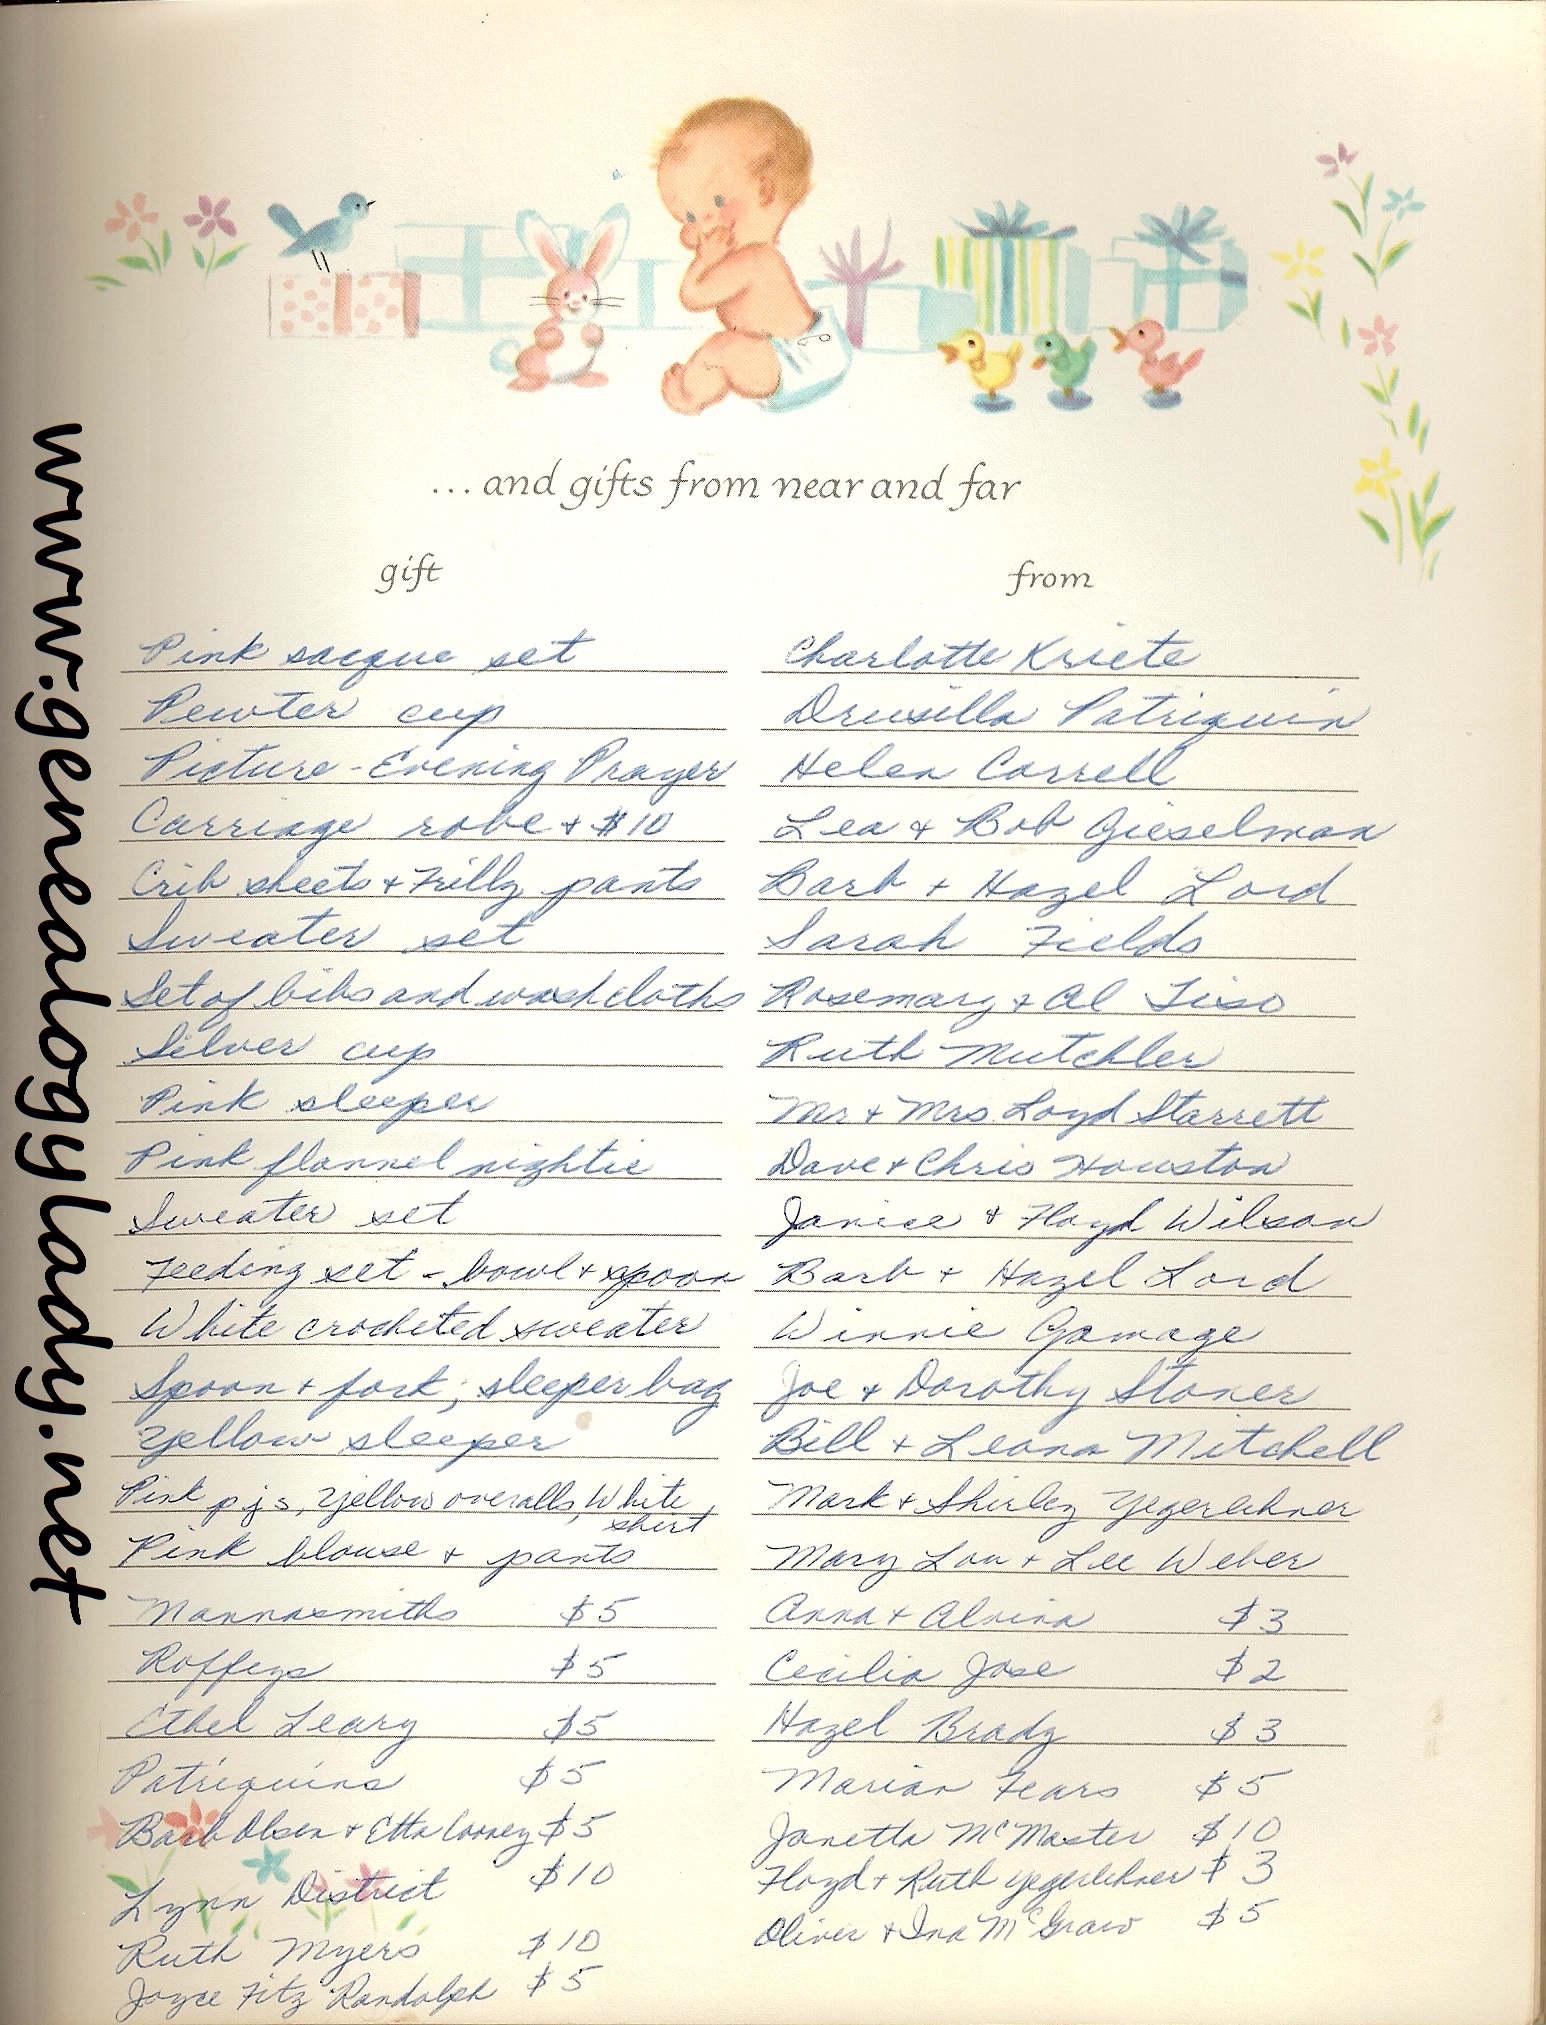 www.genealogylady.net
... and gifts from near and far
gift from
Pink sacque set Charlotte Kriete
Pewter cup Drusilla Patriquin
Picture - Evening Prayer Helen Correll
Carriage robe + $10 Lea + Bob Gieselman
Crib sheets + Frilly pants Barb + Hazel Lord
Sweater set Sarah Fields
Set of bibs and washcloths Rosemary + Al Tiso
Silver cup Ruth Mutchler
Pink sleeper Mr + Mrs Loyd Starrett
Pink flannel nightie Dave + Chris Houston
Sweater set Janice + Floyd Wilson
Feeding set - bowl + spoon Barb + Hazel Lord
White crocheted sweater Winnie Gamage
Spoon + fork; sleeper bag Joe + Dorothy Stoner
Yellow sleeper Bill + Leona Mitchell
Pink pjs, yellow overalls, White Mark + Shirley Yegerlehner
shirt
Pink blouse + pants Mary Lou + Lee Weber
Mannasmiths $5 Anna + Alvina $3
Roffeys $5 Cecilia Jose $2
Ethel Leary $5 Hazel Brady $3
Patriquins $5 Marian Fears $5
Barb Olsen + Etta Looney $5 Janetta McMaster $10
Lynn District $10 Floyd + Ruth Yegerlehner $3
Ruth Myers $10 Oliver + Ina McGraw $5
Joyce Fitz Randolph $5